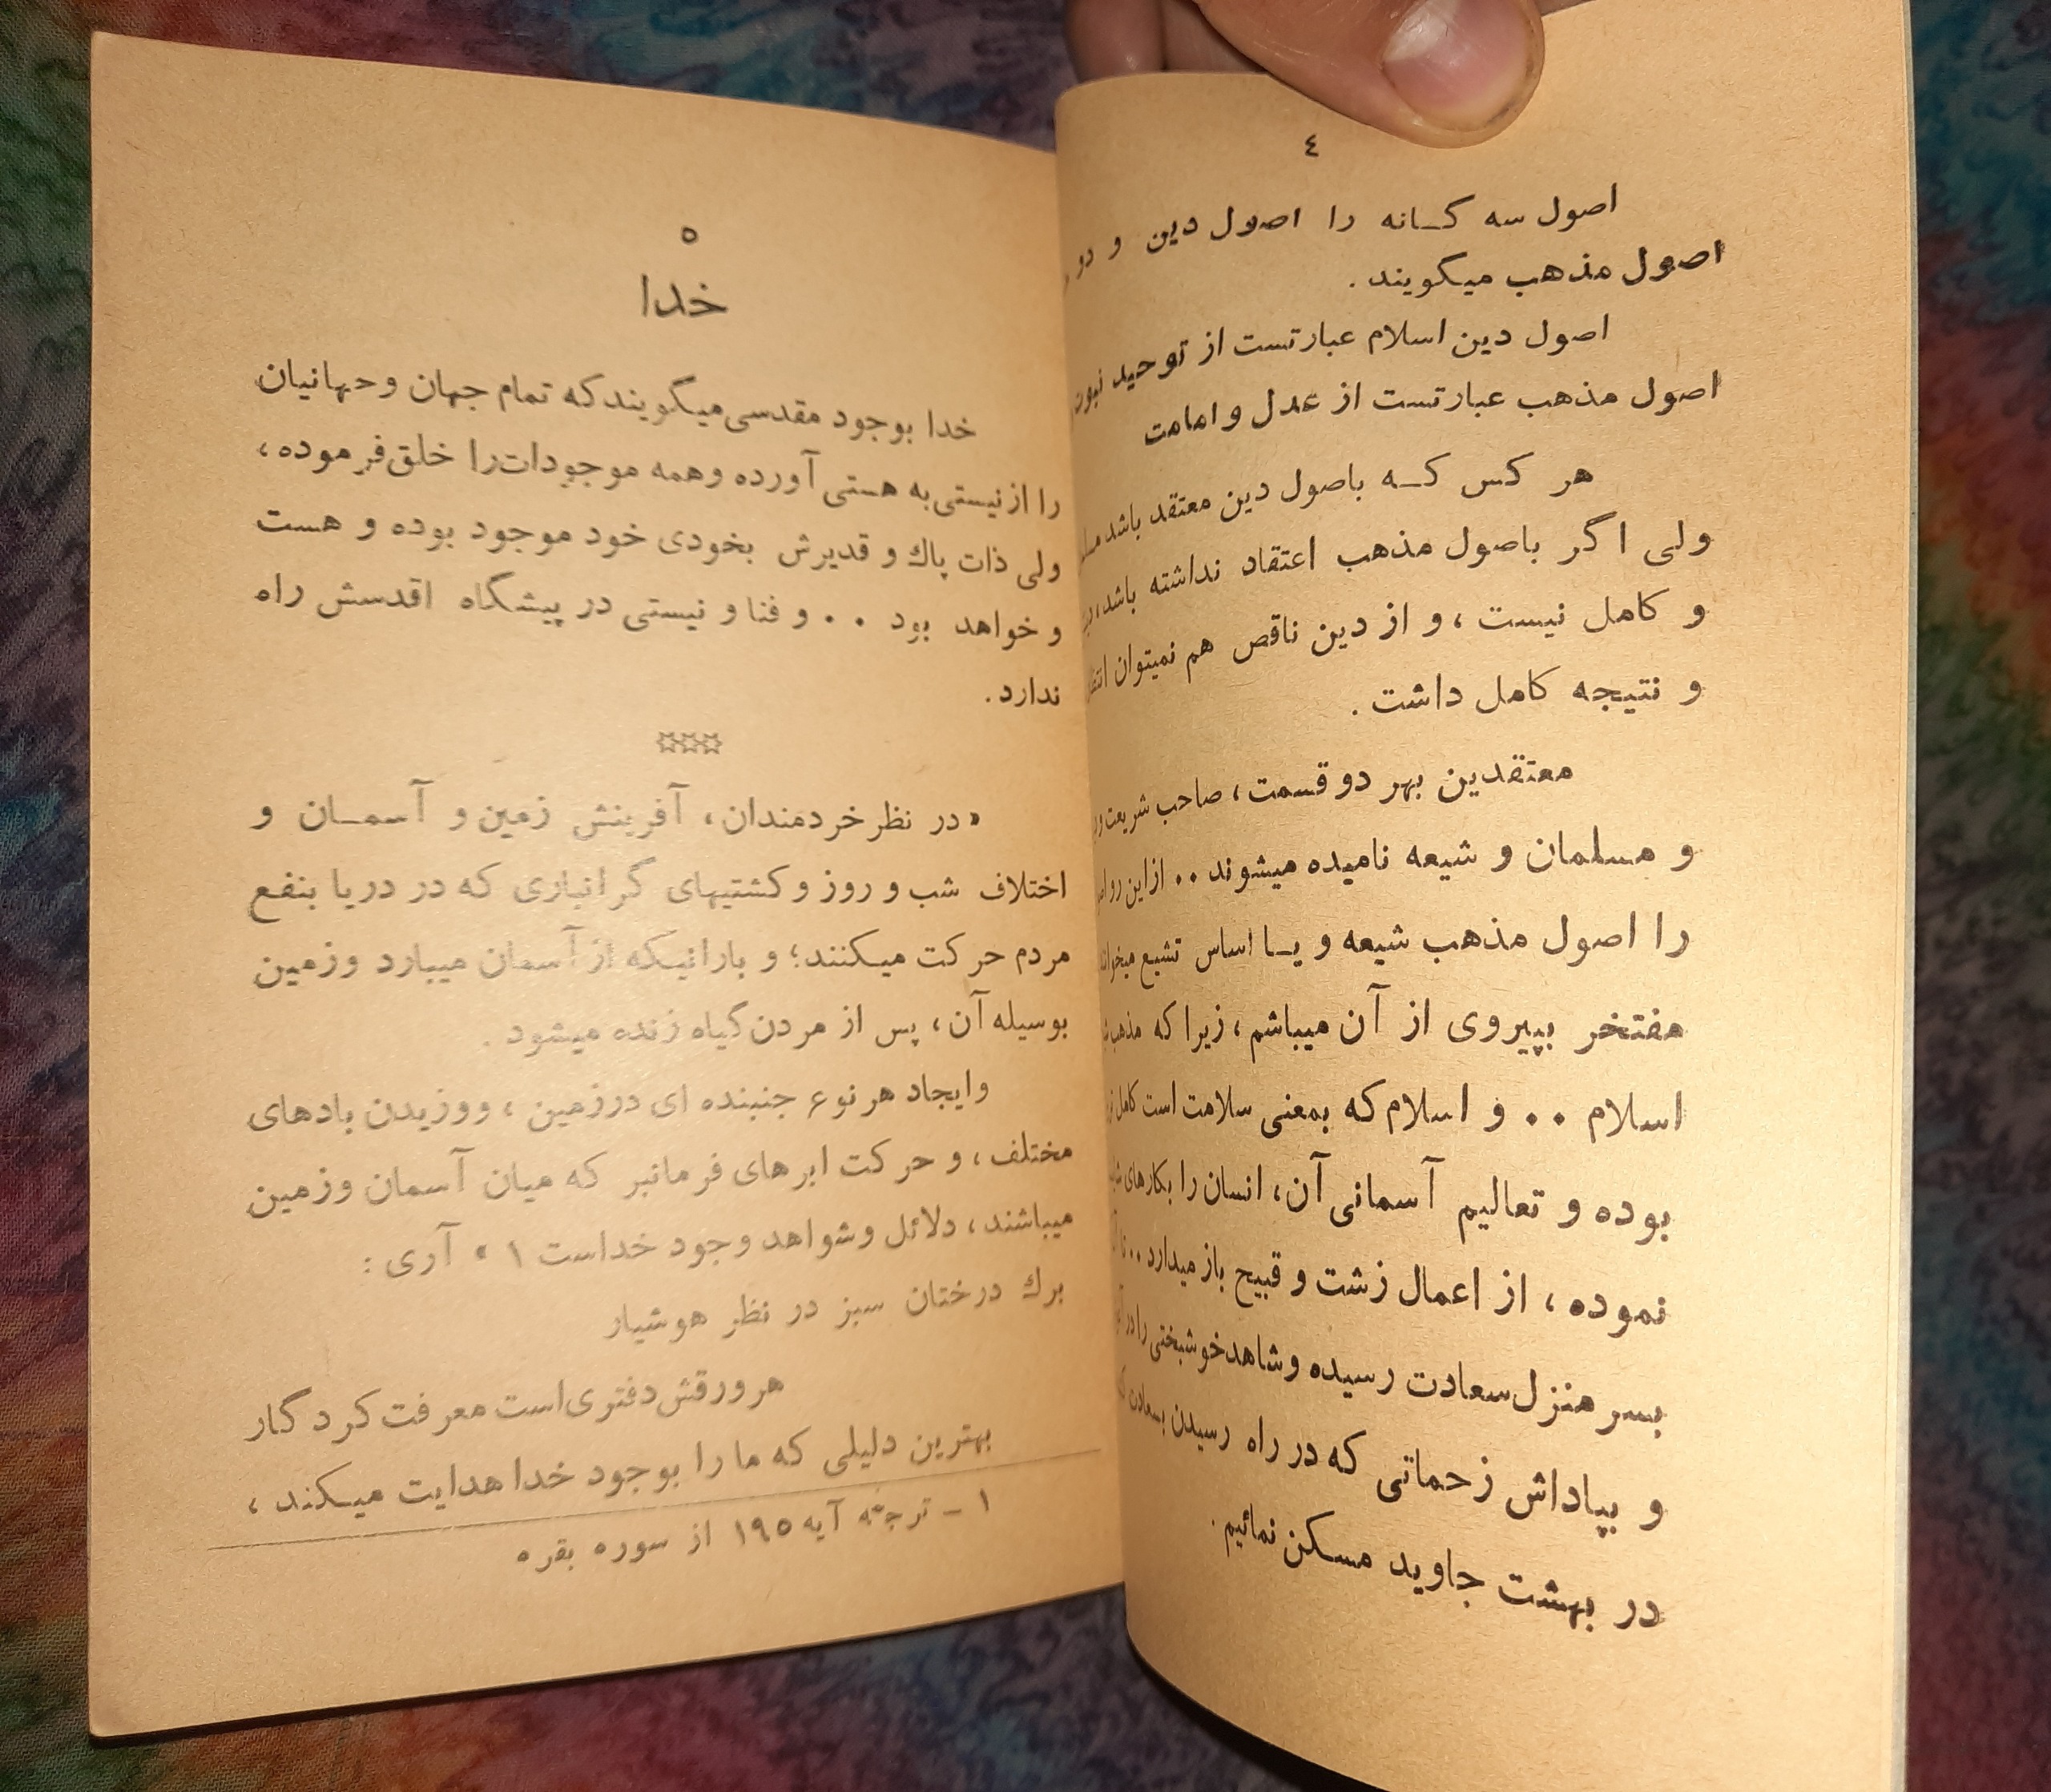 ٤
اصول سه گـانه را اصول دین و دو
اصول مذهب میگویند .
اصول دین اسلام عبارتست از توحید نبوت
اصول مذهب عبارتست از عدل و امامت
هر کس کـه باصول دین معتقد باشد
ولی اگر باصول مذهب اعتقاد نداشته باشد،
و کامل نیست ، و از دین ناقص هم نمیتوان
و نتیجه کامل داشت .
معتقدین بهر دو قسمت ، صاحب شریعت
و مسلمان و شیعه نامیده میشوند . . از این رو
را اصول مذهب شیعه و یـا اساس تشیع
مفتخر بپیروی از آن میباشم ، زیرا که
اسلام . . و اسلام که بمعنی سلامت است کامل
بوده و تعالیم آسمانی آن ، انسان را بکارهای
نموده ، از اعمال زشت و قبیح باز میدارد . .
بسر منزل سعادت رسیده و شاهد خوشبختی را در
و بپاداش زحماتی که در راه رسیدن بسعادت
در بهشت جاوید مسکن نمائیم .
٥
خدا
خدا بوجود مقدسی میگویند که تمام جهان و جهانیان
را از نیستی به هستی آورده و همه موجودات را خلق فرموده ،
ولی ذات پاك و قدیرش بخودی خود موجود بوده و هست
و خواهد بود . . و فنا و نیستی در پیشگاه اقدسش راه
ندارد .
✡✡✡
« در نظر خردمندان ، آفرینش زمین و آسمـان و
اختلاف شب و روز و کشتیهای گرانباری که در دریا بنفع
مردم حرکت میکنند ؛ و بارانیکه از آسمان میبارد و زمین
بوسیله آن ، پس از مردن گیاه زنده میشود .
و ایجاد هر نوع جنبنده ای در زمین ، و وزیدن بادهای
مختلف ، و حرکت ابرهای فرمانبر که میان آسمان و زمین
میباشند ، دلائل و شواهد وجود خداست ١ » آری :
برك درختان سبز در نظر هوشیار
هر ورقش دفتری است معرفت کردگار
بهترین دلیلی که ما را بوجود خدا هدایت میکند ،
١ - ترجمه آیه ١٩٥ از سوره بقره